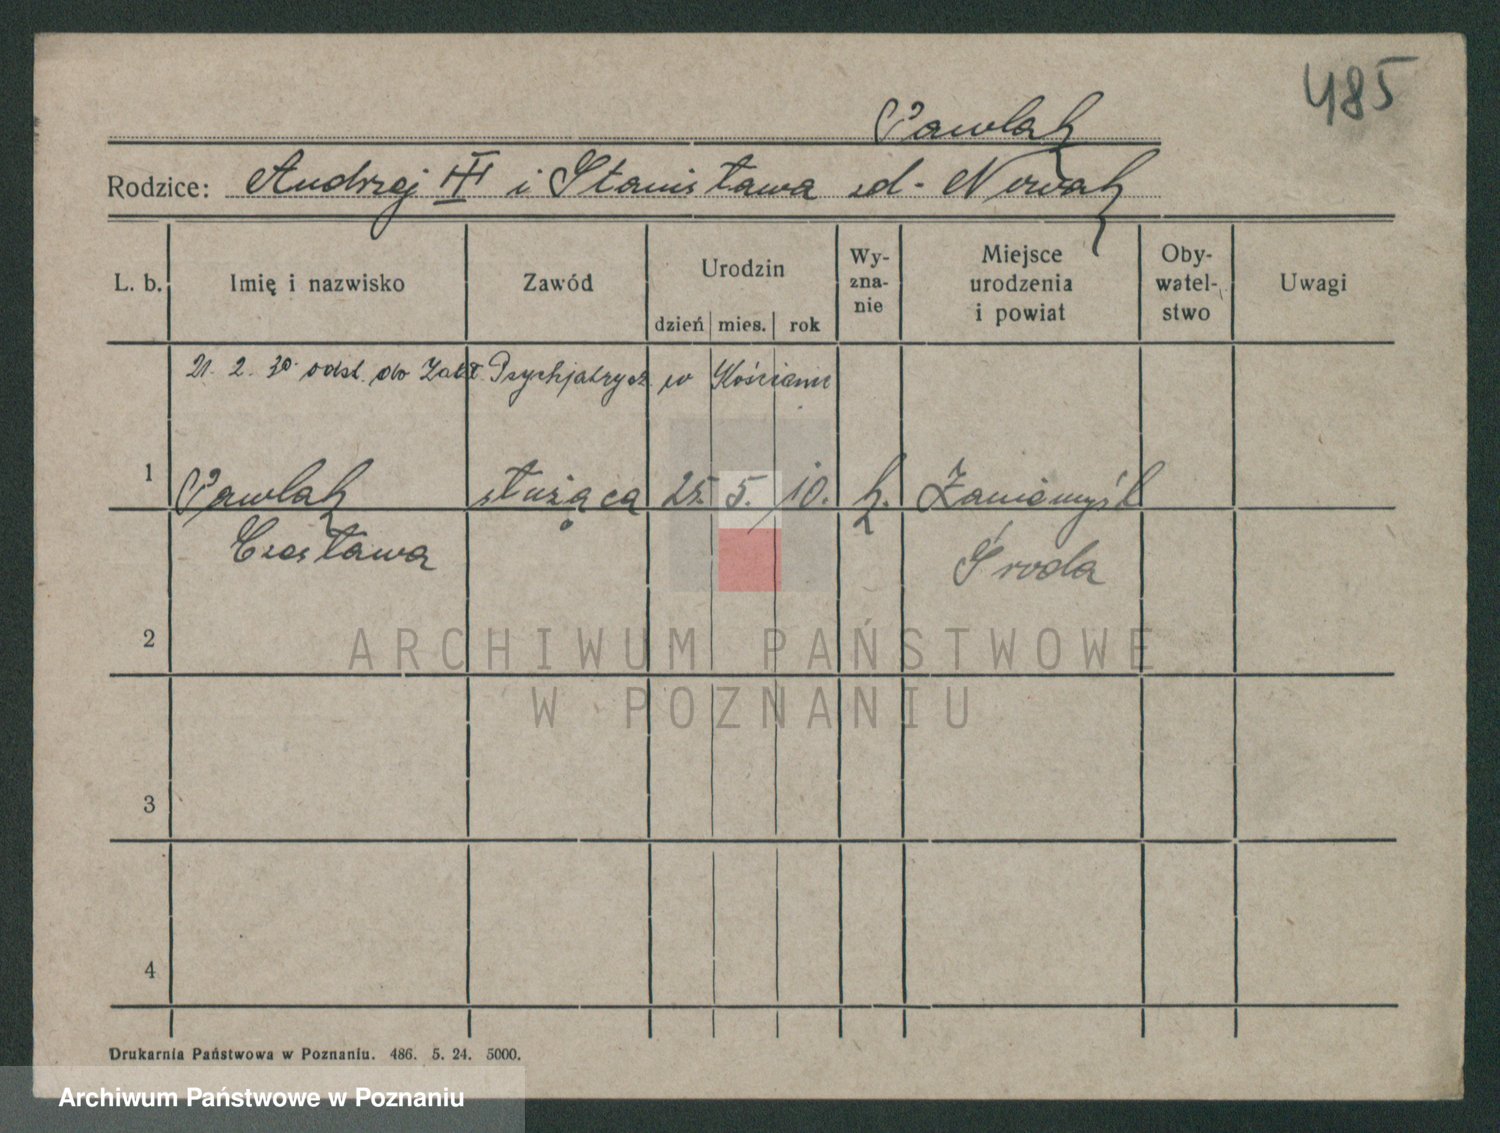 485
Pawlak
Rodzice: Andrzej III i Stanisława zd. Nowak
L. b. Imię i nazwisko Zawód Urodzin dzień mies. rok Wy-zna-nie Miejsce urodzenia i powiat Oby-watel-stwo Uwagi
21. 2. 30 odst. do Zakł. Psychjatrycz w Kościanie
1 Pawlak służąca 25. 5. 10. k. Zaniemyśl
Czesława Środa
2
3
4
ARCHIWUM PAŃSTWOWE
W POZNANIU
Drukarnia Państwowa w Poznaniu. 486. 5. 24. 5000.
Archiwum Państwowe w Poznaniu